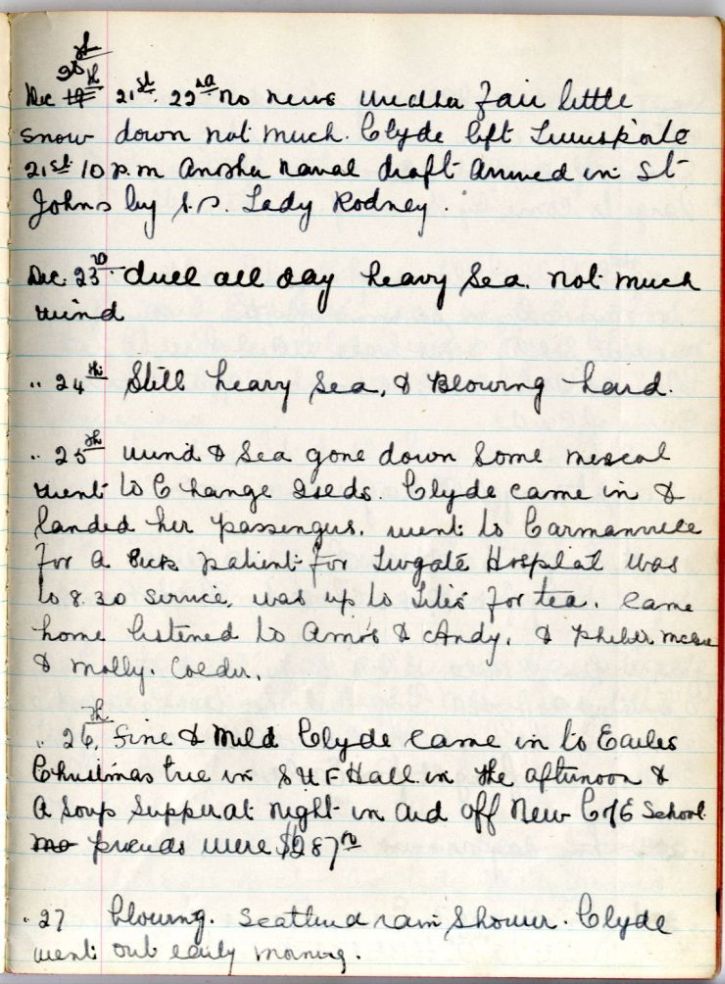 20th
Dec 19th 21st. 22nd no news weather fair little
snow down not much. Clyde left Lewisporte
21st 10 p.m Another naval draft arrived in St
Johns by S.S. Lady Rodney.
Dec. 23rd. dull all day heavy Sea. not much
wind
.. 24th Still heavy Sea, & Blowing hard.
.. 25th wind & Sea gone down Some
went to Change Islds. Clyde came in &
landed her passengers. went to Carmanville
for a Sick patient for Twgate Hosplat was
to 8.30 service, was up to for tea. came
home listened to Amos & Andy. &
& Molly. Colder.
.. 26th, Fine & Mild Clyde came in to Eailes
Christmas tree in S U F Hall in the afternoon &
A Soup Supper at night in aid off New C of E School.
preuds were $287
.. 27 blowing. Scattered rain Shower. Clyde
went out early morning.